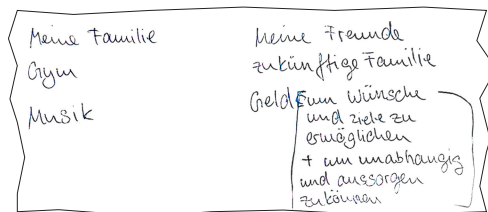 Meine Familie
Gym
Musik
Meine Freunde
zukünftige Familie
Geld um Wünsche
und ziele zu
ermöglichen
+ um unabhängig
und aussorgen
zukönnen